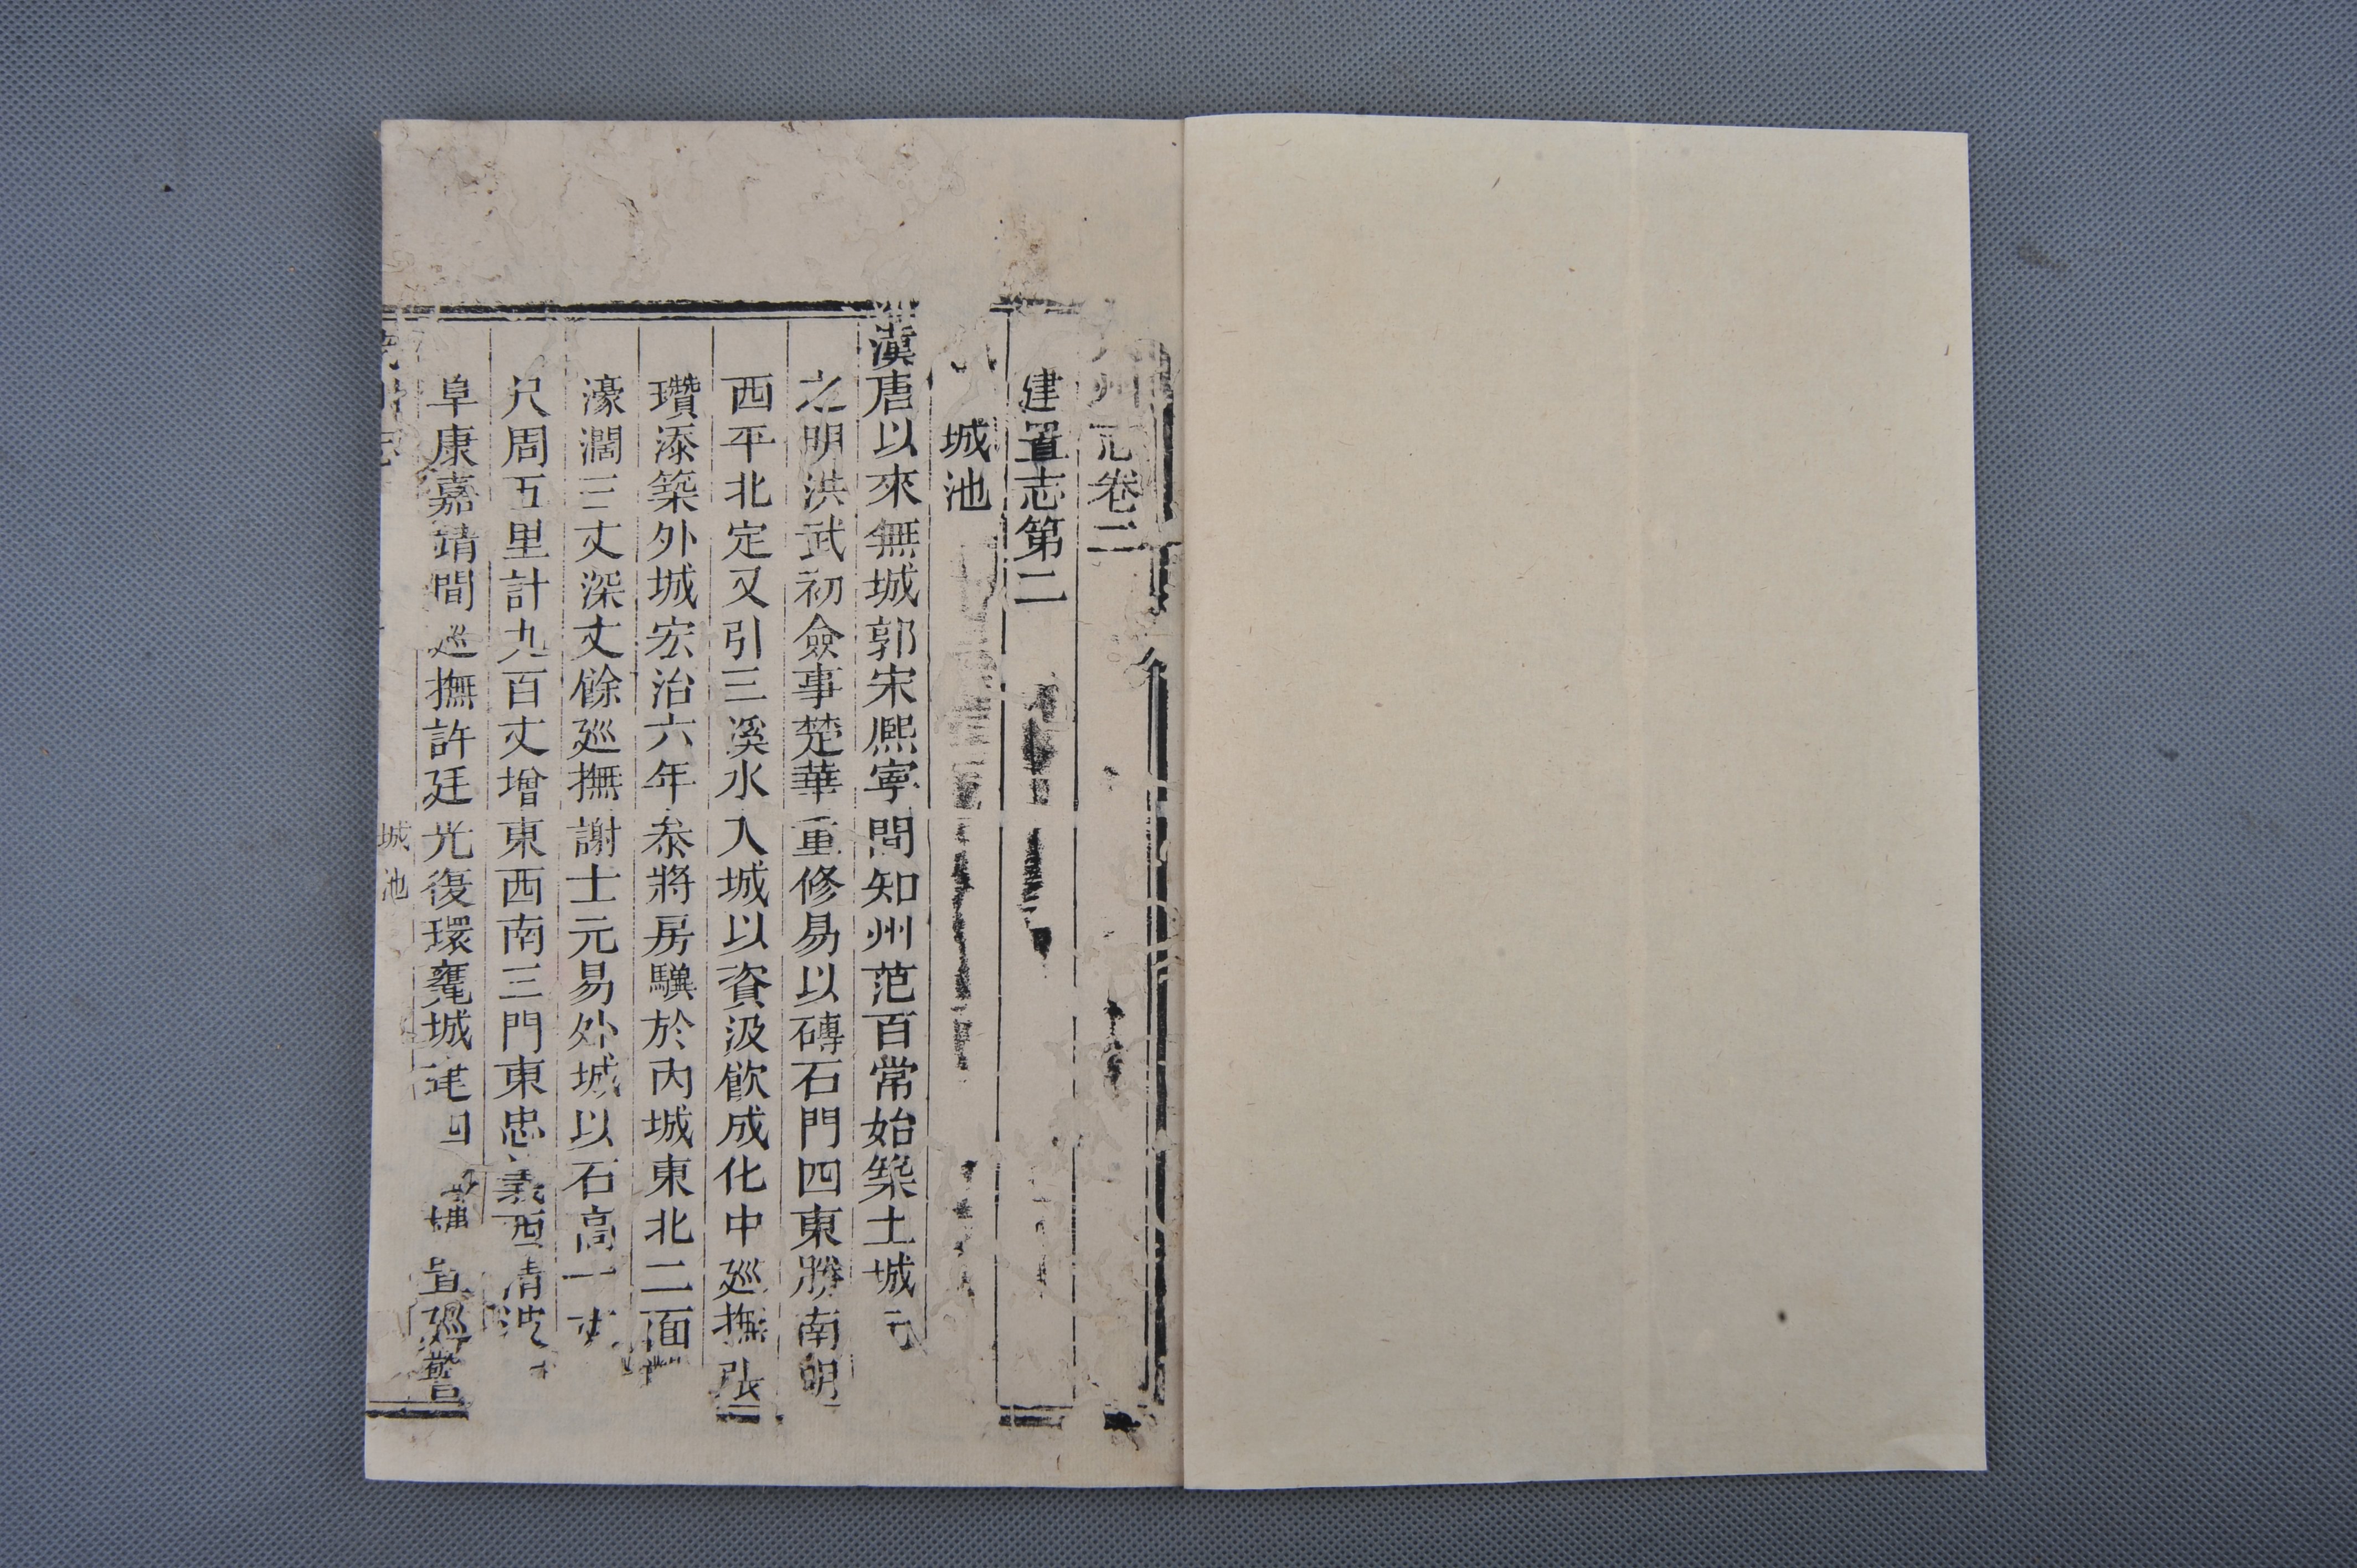 州志卷二
建置志第二
城池
漢唐以來無城郭宋熈寧間知州范百常始築土城元
之明洪武初僉事楚華重修易以磚石門四東勝南明
西平北定又引三溪水入城以資汲飮成化中廵撫張
瓚添築外城宏治六年叅將房驥於內城東北二面
濠濶三丈深丈餘廵撫謝士元易外城以石高一丈
尺周五里計九百丈增東西南三門東忠義西清波
阜康嘉靖間廵撫許廷光復環甕城建四 直廵警
城池